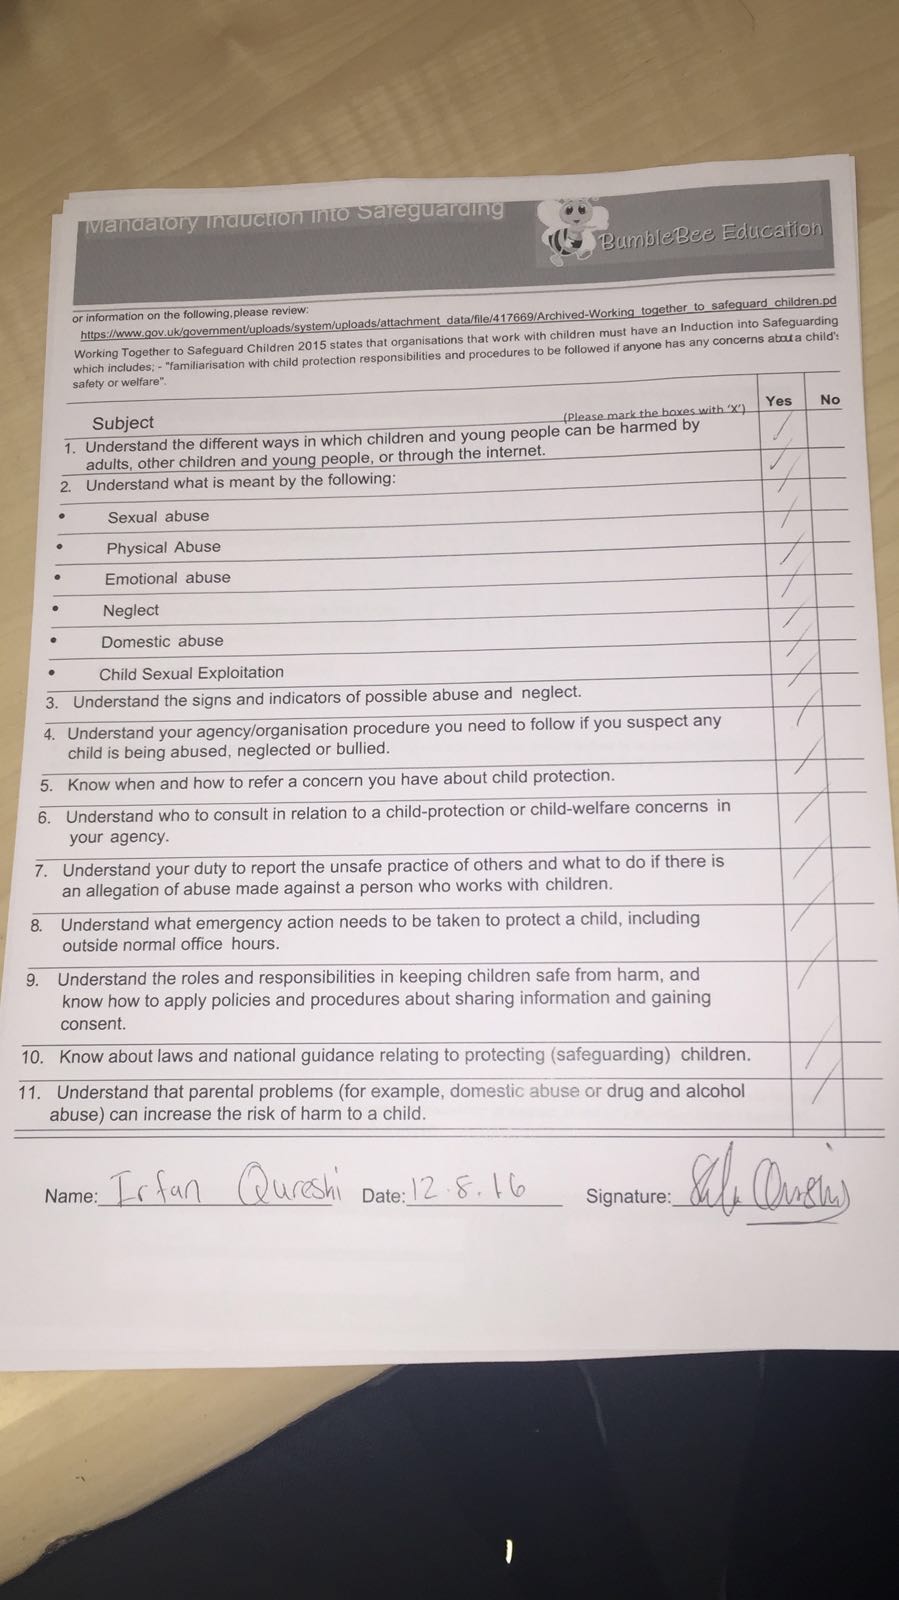 Mandatory Induction into Safeguarding
BumbleBee Education
or information on the following,please review:
https://www.gov.uk/government/uploads/system/uploads/attachment_data/file/417669/Archived-Working_together_to_safeguard_children.pd
Working Together to Safeguard Children 2015 states that organisations that work with children must have an Induction into Safeguarding
which includes; - "familiarisation with child protection responsibilities and procedures to be followed if anyone has any concerns about a child's
safety or welfare".
Subject (Please mark the boxes with 'X') Yes No
1. Understand the different ways in which children and young people can be harmed by
adults, other children and young people, or through the internet.
2. Understand what is meant by the following:
• Sexual abuse
• Physical Abuse
• Emotional abuse
• Neglect
• Domestic abuse
• Child Sexual Exploitation
3. Understand the signs and indicators of possible abuse and neglect.
4. Understand your agency/organisation procedure you need to follow if you suspect any
child is being abused, neglected or bullied.
5. Know when and how to refer a concern you have about child protection.
6. Understand who to consult in relation to a child-protection or child-welfare concerns in
your agency.
7. Understand your duty to report the unsafe practice of others and what to do if there is
an allegation of abuse made against a person who works with children.
8. Understand what emergency action needs to be taken to protect a child, including
outside normal office hours.
9. Understand the roles and responsibilities in keeping children safe from harm, and
know how to apply policies and procedures about sharing information and gaining
consent.
10. Know about laws and national guidance relating to protecting (safeguarding) children.
11. Understand that parental problems (for example, domestic abuse or drug and alcohol
abuse) can increase the risk of harm to a child.
Name: Irfan Qureshi Date: 12.8.16 Signature: